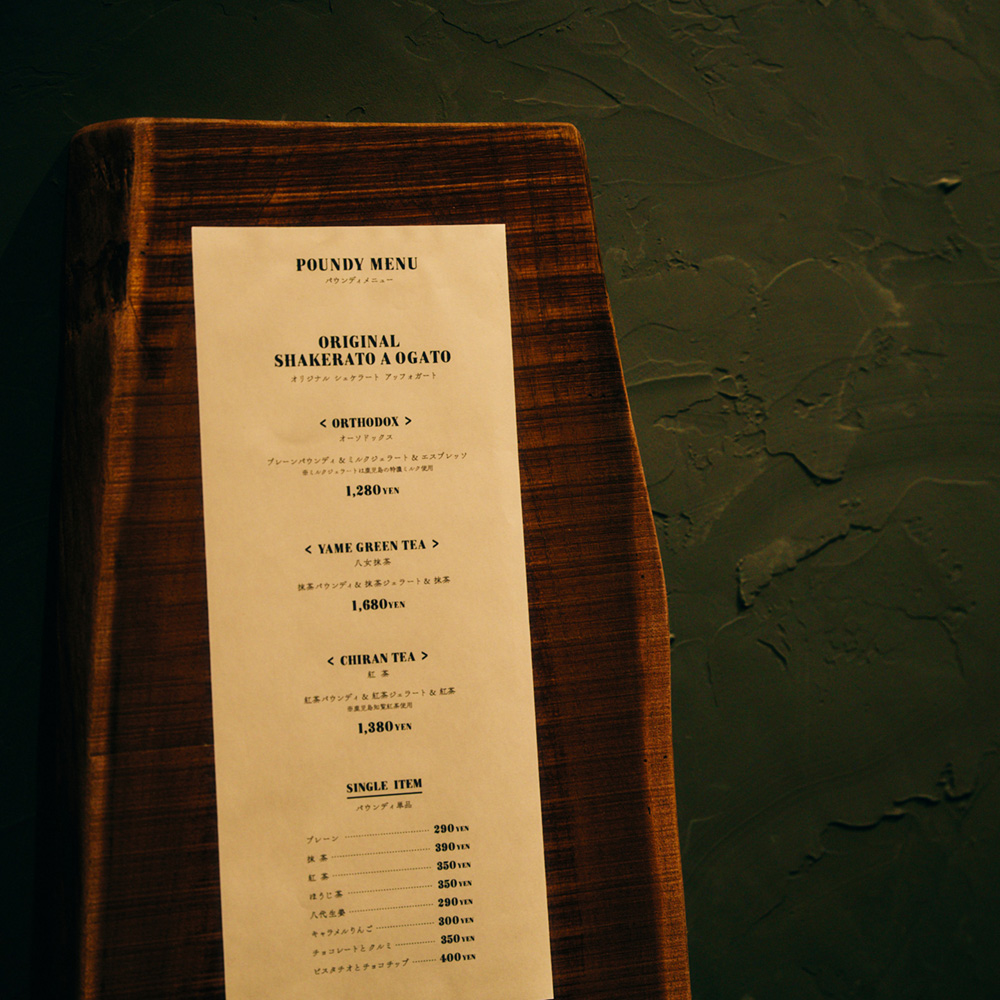 POUNDY MENU
パウンディメニュー
ORIGINAL
SHAKERATO A OGATO
オリジナル シェケラート アッフォガート
< ORTHODOX >
オーソドックス
プレーンパウンディ & ミルクジェラート & エスプレッソ
※ミルクジェラートは鹿児島の特濃ミルク使用
1,280YEN
< YAME GREEN TEA >
八女抹茶
抹茶パウンディ & 抹茶ジェラート & 抹茶
1,680YEN
< CHIRAN TEA >
紅 茶
紅茶パウンディ & 紅茶ジェラート & 紅茶
※鹿児島知覧紅茶使用
1,380YEN
SINGLE ITEM
パウンディ単品
プレーン 290YEN
抹 茶 390YEN
紅 茶 350YEN
ほうじ茶 350YEN
八代生姜 290YEN
キャラメルりんご 300YEN
チョコレートとクルミ 350YEN
ピスタチオとチョコチップ 400YEN